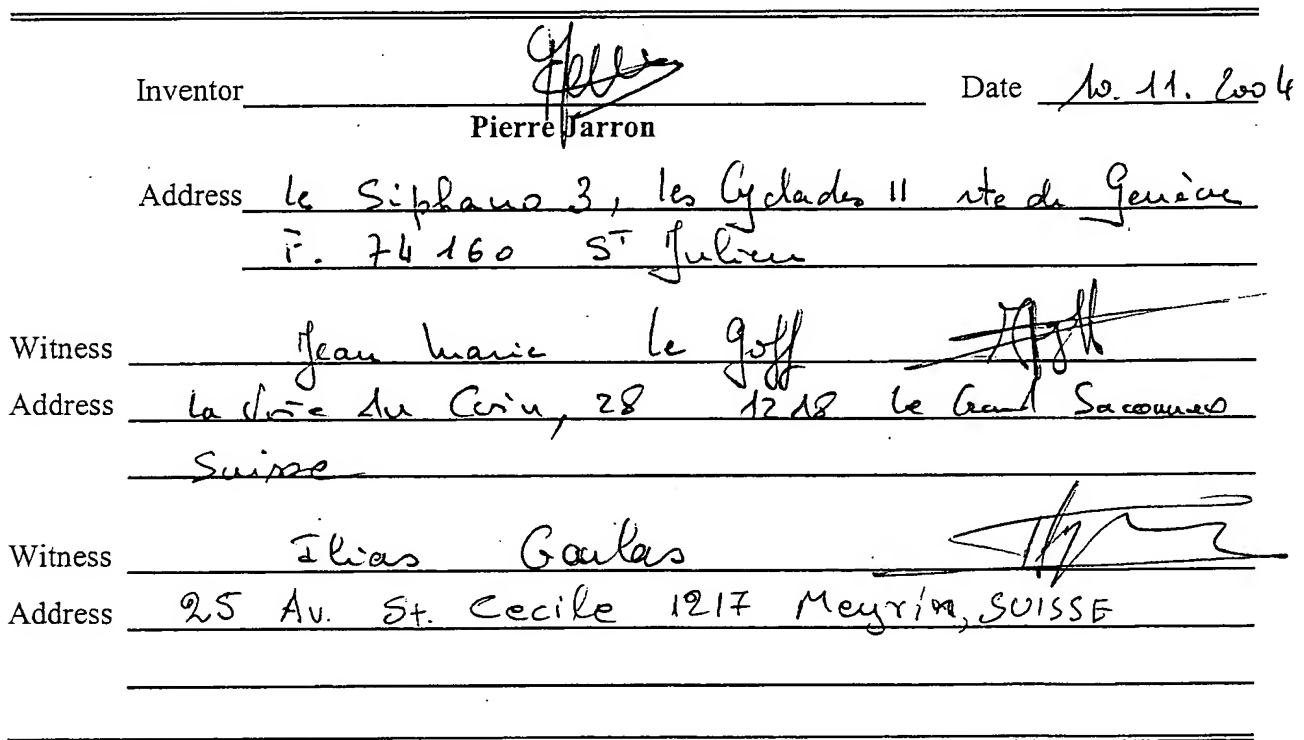 Inventor Date 10. 11. 2004
Pierre Jarron
Address Le Siphano 3, les Cyclades 11 rte de Genève
F. 74 160 ST Julien
Witness Jean Marie Le Goff
Address La Voie du Coin, 28 1218 Le Grand Saconnex
Suisse
Witness Ilias Goulas
Address 25 Av. St. Cecile 1217 Meyrin, SUISSE